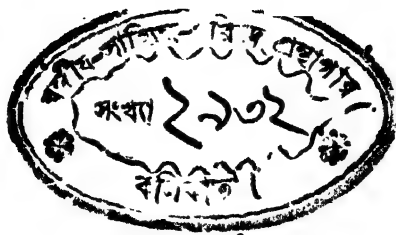 বঙ্গীয়-সাহিত্য-পরিষদ্ গ্রন্থাগার
সংখ্যা ২৯৩২
কলিকাতা